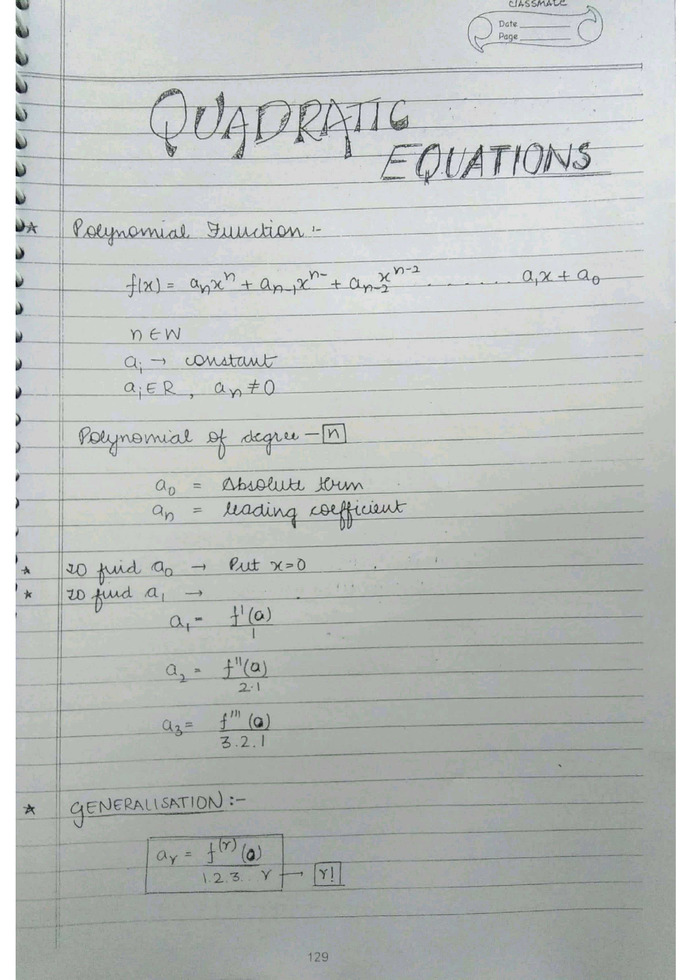 CLASSMATE
Date
Page
QUADRATIC
EQUATIONS
★ Polynomial Function :-
f(x) = aₙxⁿ + aₙ₋₁xⁿ⁻ + aₙ₋₂xⁿ⁻² . . . . . . . a₁x + a₀
n ∈ W
aᵢ → constant
aᵢ ∈ R , aₙ ≠ 0
Polynomial of degree – n
a₀ = Absolute term
aₙ = leading coefficient
★ To find a₀ → Put x=0
★ To find a₁ →
a₁ = f'(0)
1
a₂ = f''(0)
2.1
a₃ = f'''(0)
3.2.1
★ GENERALISATION :-
aᵣ = f⁽ʳ⁾(0)
1.2.3. r → r!
129